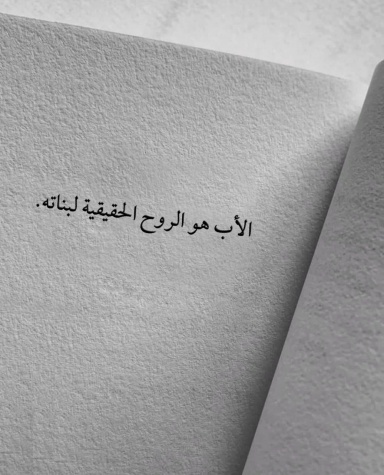 الأب هو الروح الحقيقية لبناته.